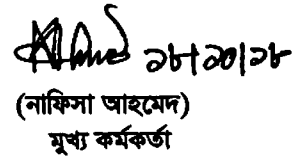 ১৮/১০/১৮
(নাফিসা আহমেদ)
মুখ্য কর্মকর্তা